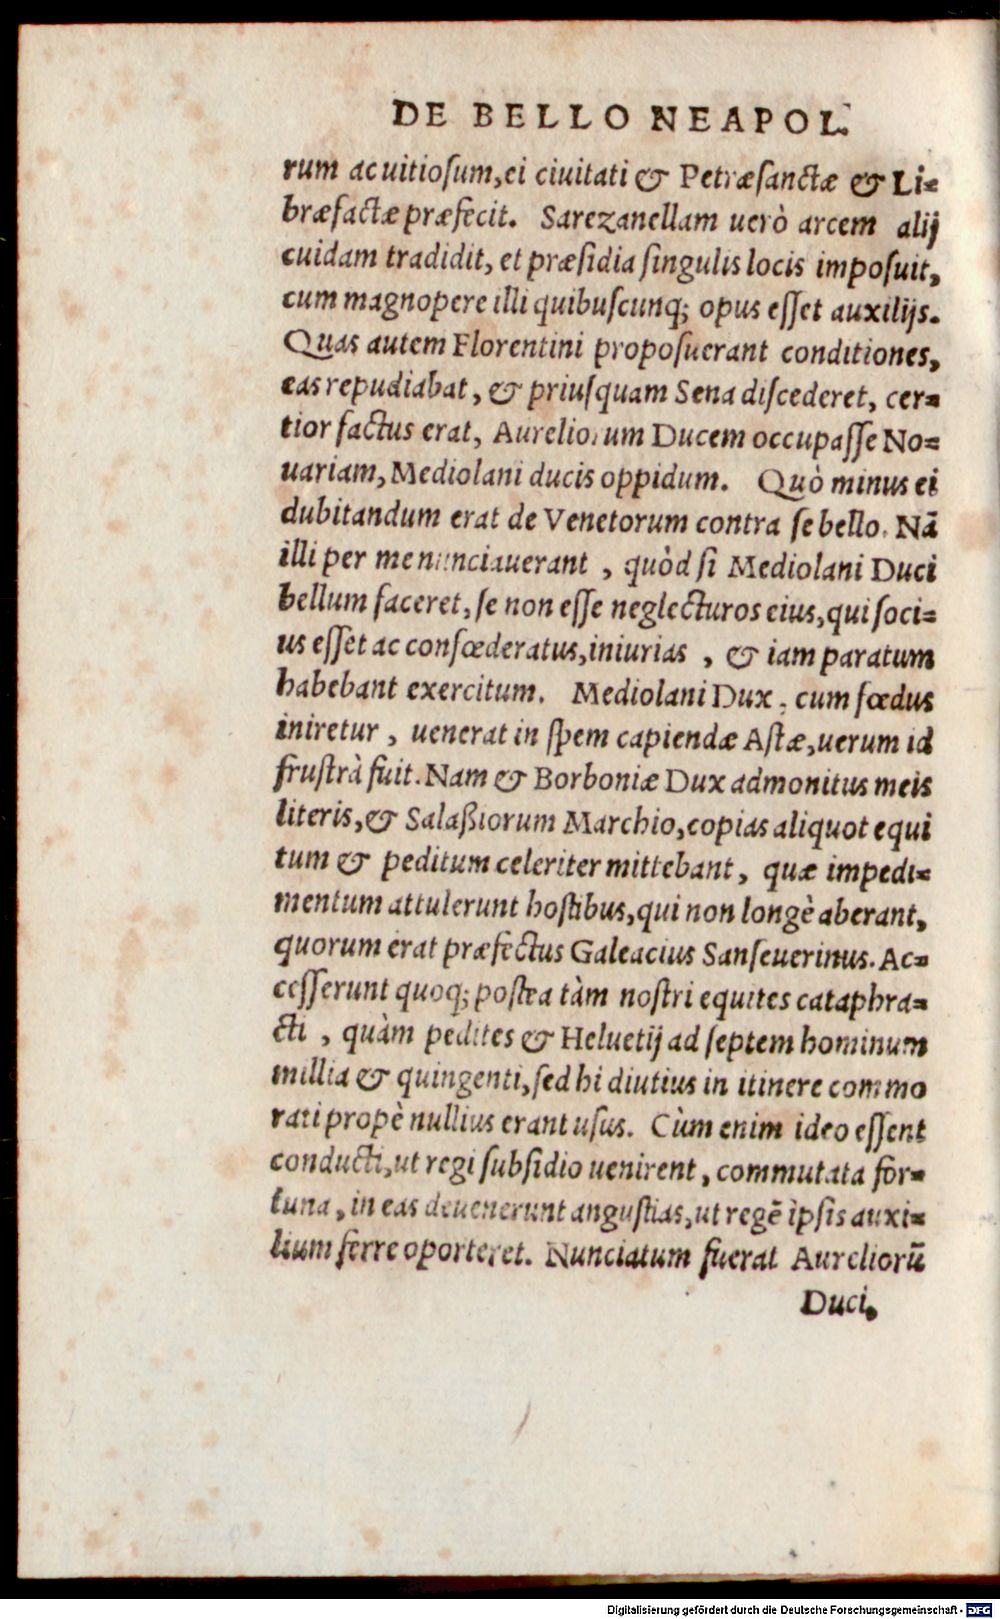 DE BELLO NEAPOL.
rum ac uitiosum, ei ciuitati & Petræsanctæ & Li=
bræfactæ præfecit. Sarezanellam uerò arcem alij
cuidam tradidit, et præsidia singulis locis imposuit,
cum magnopere illi quibuscunq; opus esset auxilijs.
Quas autem Florentini proposuerant conditiones,
eas repudiabat, & priusquam Sena discederet, cer=
tior factus erat, Aureliorum Ducem occupasse No=
uariam, Mediolani ducis oppidum. Quò minus ei
dubitandum erat de Venetorum contra se bello. Nā
illi per me nunciauerant, quòd si Mediolani Duci
bellum faceret, se non esse neglecturos eius, qui soci=
us esset ac confœderatus, iniurias, & iam paratum
habebant exercitum. Mediolani Dux, cum fœdus
iniretur, uenerat in spem capiendæ Astæ, uerum id
frustrà fuit. Nam & Borboniæ Dux admonitus meis
literis, & Salaßiorum Marchio, copias aliquot equi
tum & peditum celeriter mittebant, quæ impedi=
mentum attulerunt hostibus, qui non longè aberant,
quorum erat præfectus Galeacius Sanseuerinus. Ac=
cesserunt quoq; postea tàm nostri equites cataphra=
cti, quàm pedites & Heluetij ad septem hominum
millia & quingenti, sed hi diutius in itinere commo
rati propè nullius erant usus. Cùm enim ideo essent
conducti, ut regi subsidio uenirent, commutata for=
tuna, in eas deuenerunt angustias, ut regē ipsis auxi=
lium ferre oporteret. Nunciatum fuerat Aureliorū
Duci,
Digitalisierung gefördert durch die Deutsche Forschungsgemeinschaft - DFG